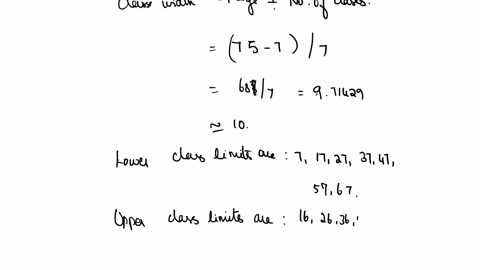 Class width = Range ÷ No. of classes.
= (75-7)/7
= 68/7 = 9.71429
≃ 10.
Lower class limits are : 7, 17, 27, 37, 47,
57, 67.
Upper class limits are : 16, 26, 36,